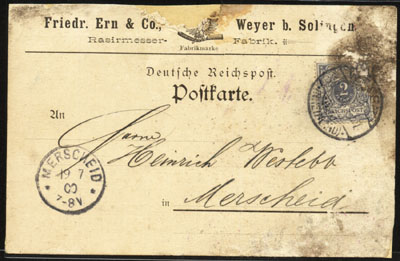 Friedr. Ern & Co., Weyer b. Solingen.
Rasirmesser- Fabrik.
Fabrikmarke
Deutsche Reichspost.
Postkarte.
An
Herrn
Heinrich Westebb
in Merscheid
MERSCHEID
19 7
00
7-8V
2